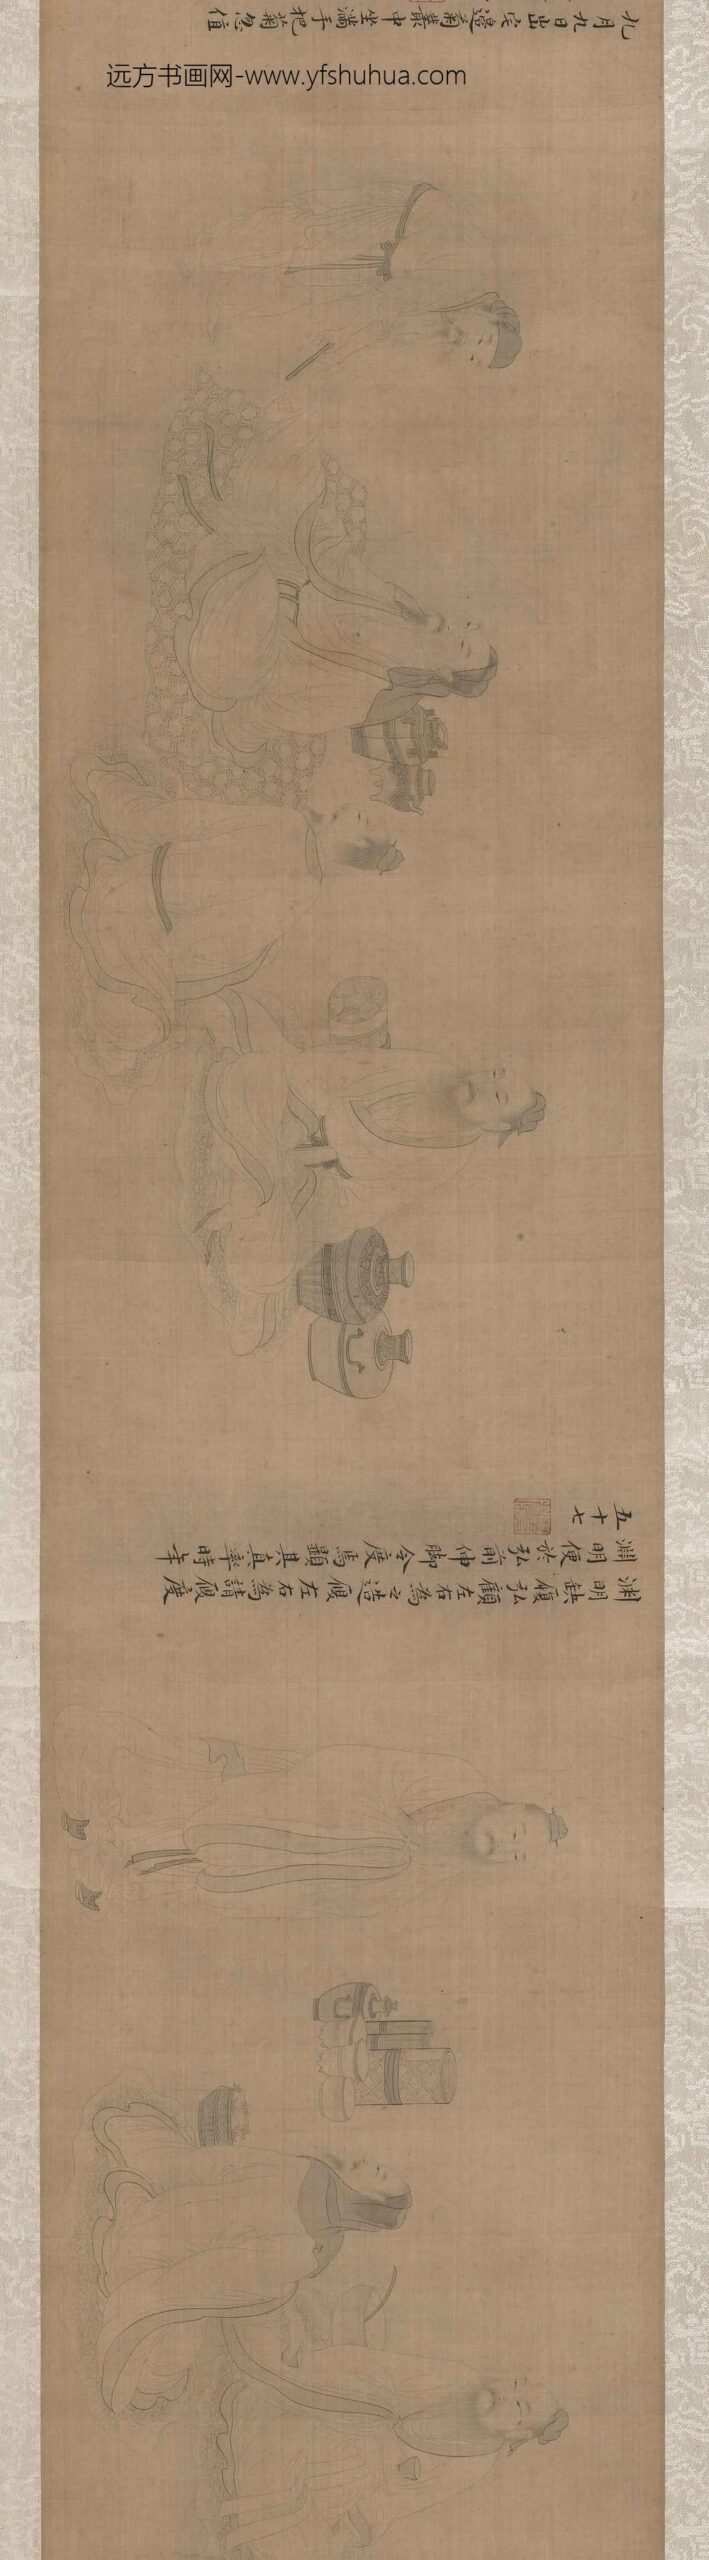 远方书画网-www.yfshuhua.com
渊明缺履弘顧左右為之造履左右為請履度
淵明便於弘前伸脚令度焉顯其真率時年
五十七
九月九日出宅邊菊叢中坐滿手把菊忽值